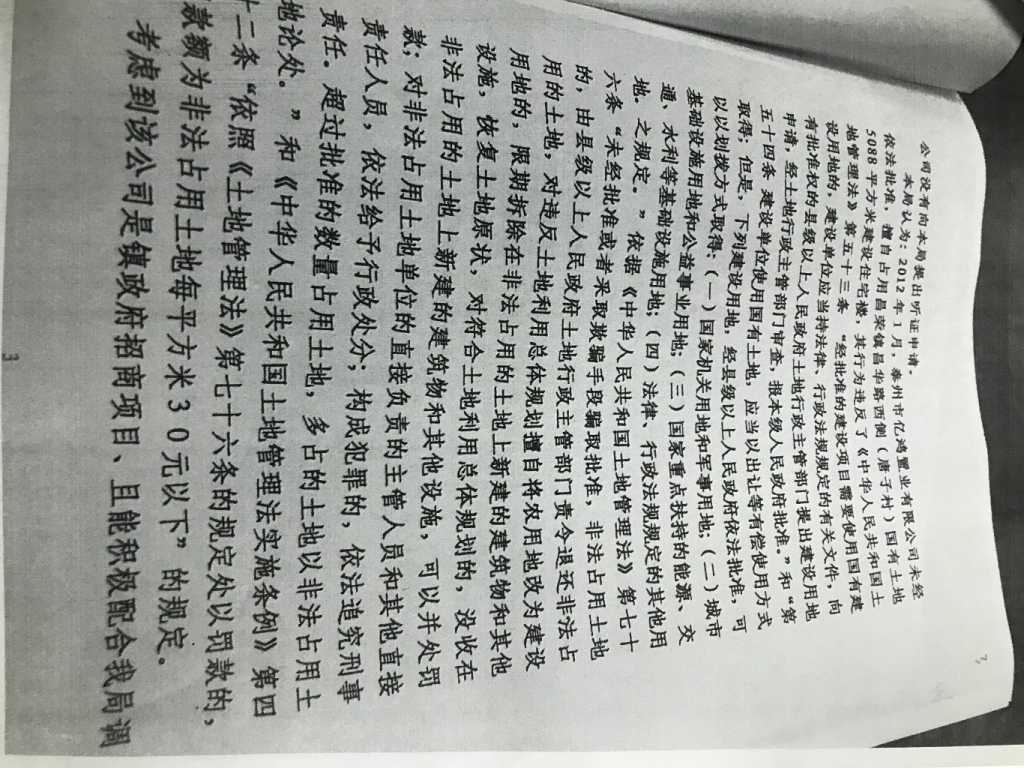 公司没有向本局提出听证申请。
本局认为：2012年1月，泰州市亿鸿置业有限公司未经
依法批准，擅自占用昌荣镇昌华路西侧（唐子村）国有土地
5088平方米建设住宅楼，其行为违反了《中华人民共和国土
地管理法》第五十三条 “经批准的建设项目需要使用国有建
设用地的，建设单位应当持法律、行政法规规定的有关文件，向
有批准权的县级以上人民政府土地行政主管部门提出建设用地
申请，经土地行政主管部门审查，报本级人民政府批准。”和“第
五十四条 建设单位使用国有土地，应当以出让等有偿使用方式
取得；但是，下列建设用地，经县级以上人民政府依法批准，可
以以划拨方式取得：（一）国家机关用地和军事用地；（二）城市
基础设施用地和公益事业用地；（三）国家重点扶持的能源、交
通、水利等基础设施用地；（四）法律、行政法规规定的其他用
地。之规定。”依据《中华人民共和国土地管理法》第七十
六条“未经批准或者采取欺骗手段骗取批准，非法占用土地
的，由县级以上人民政府土地行政主管部门责令退还非法占
用的土地，对违反土地利用总体规划擅自将农用地改为建设
用地的，限期拆除在非法占用的土地上新建的建筑物和其他
设施，恢复土地原状，对符合土地利用总体规划的，没收在
非法占用的土地上新建的建筑物和其他设施，可以并处罚
款；对非法占用土地单位的直接负责的主管人员和其他直接
责任人员，依法给予行政处分；构成犯罪的，依法追究刑事
责任。超过批准的数量占用土地，多占的土地以非法占用土
地论处。”和《中华人民共和国土地管理法实施条例》第四
十二条“依照《土地管理法》第七十六条的规定处以罚款的，
款额为非法占用土地每平方米30元以下”的规定。
考虑到该公司是镇政府招商项目、且能积极配合我局调
3